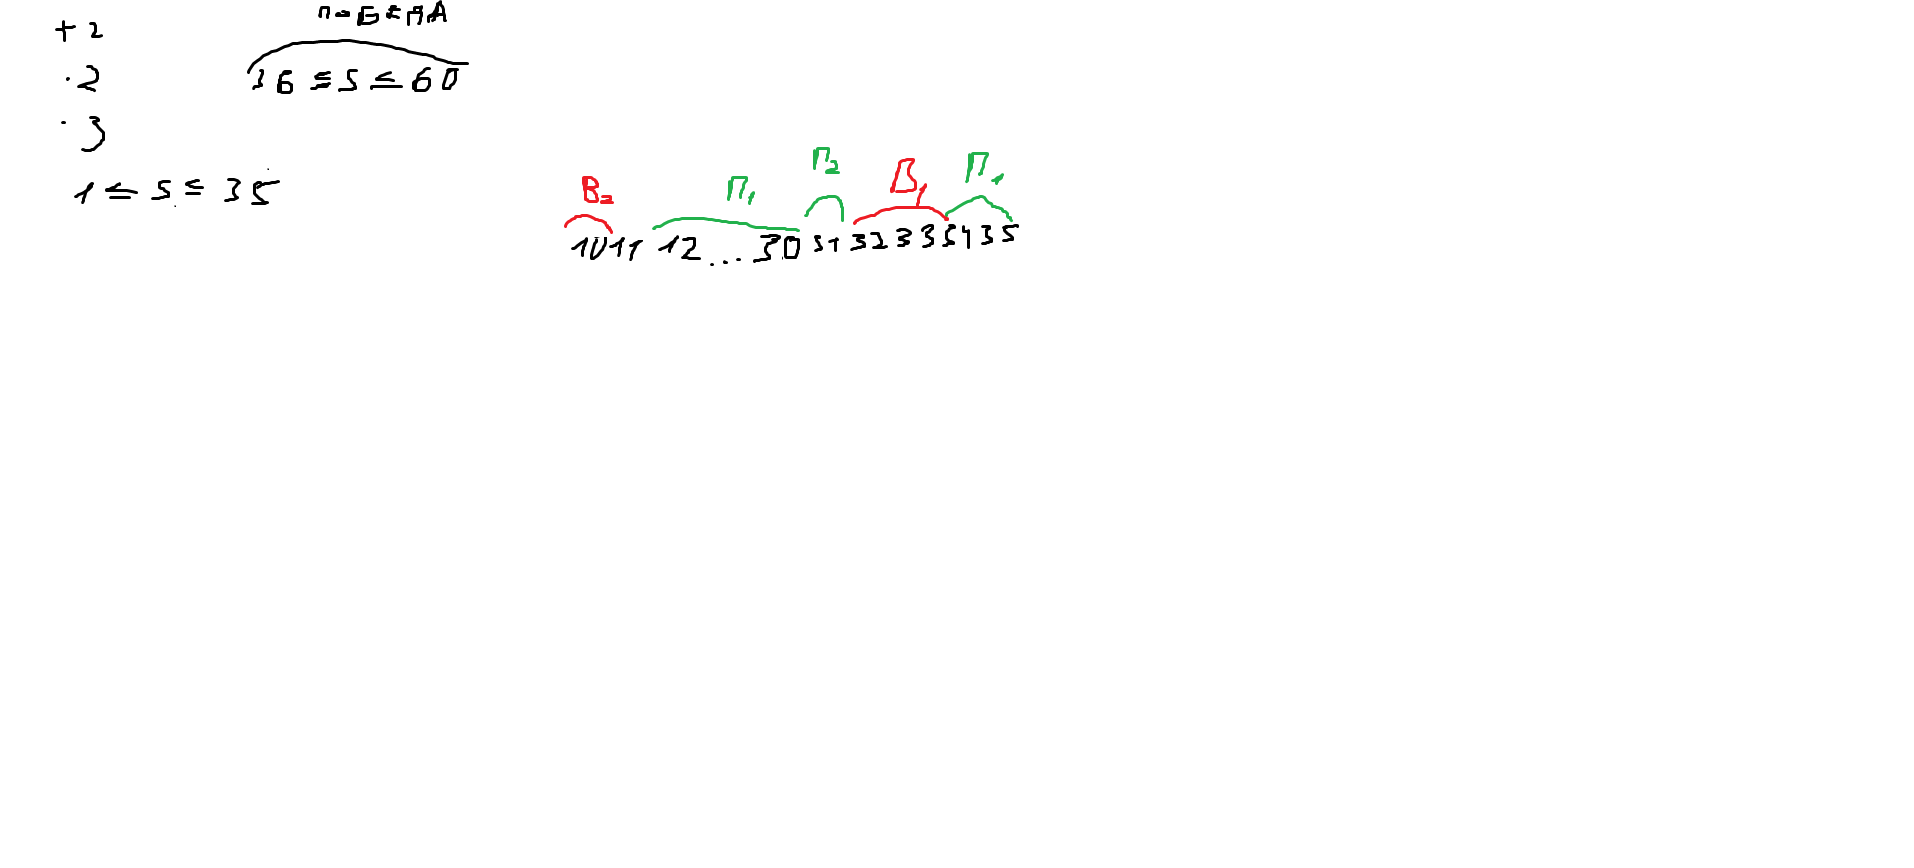 + 2
· 2
· 3
1 ≤ S ≤ 35
ПОБЕДА
36 ≤ S ≤ 60
В₂ П₁ П₂ В₁ П₁
10 11 12 ... 30 31 32 33 34 35